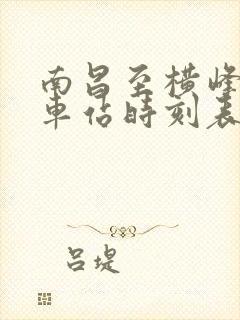 南昌至横峰
車佔時刻表
吕堤